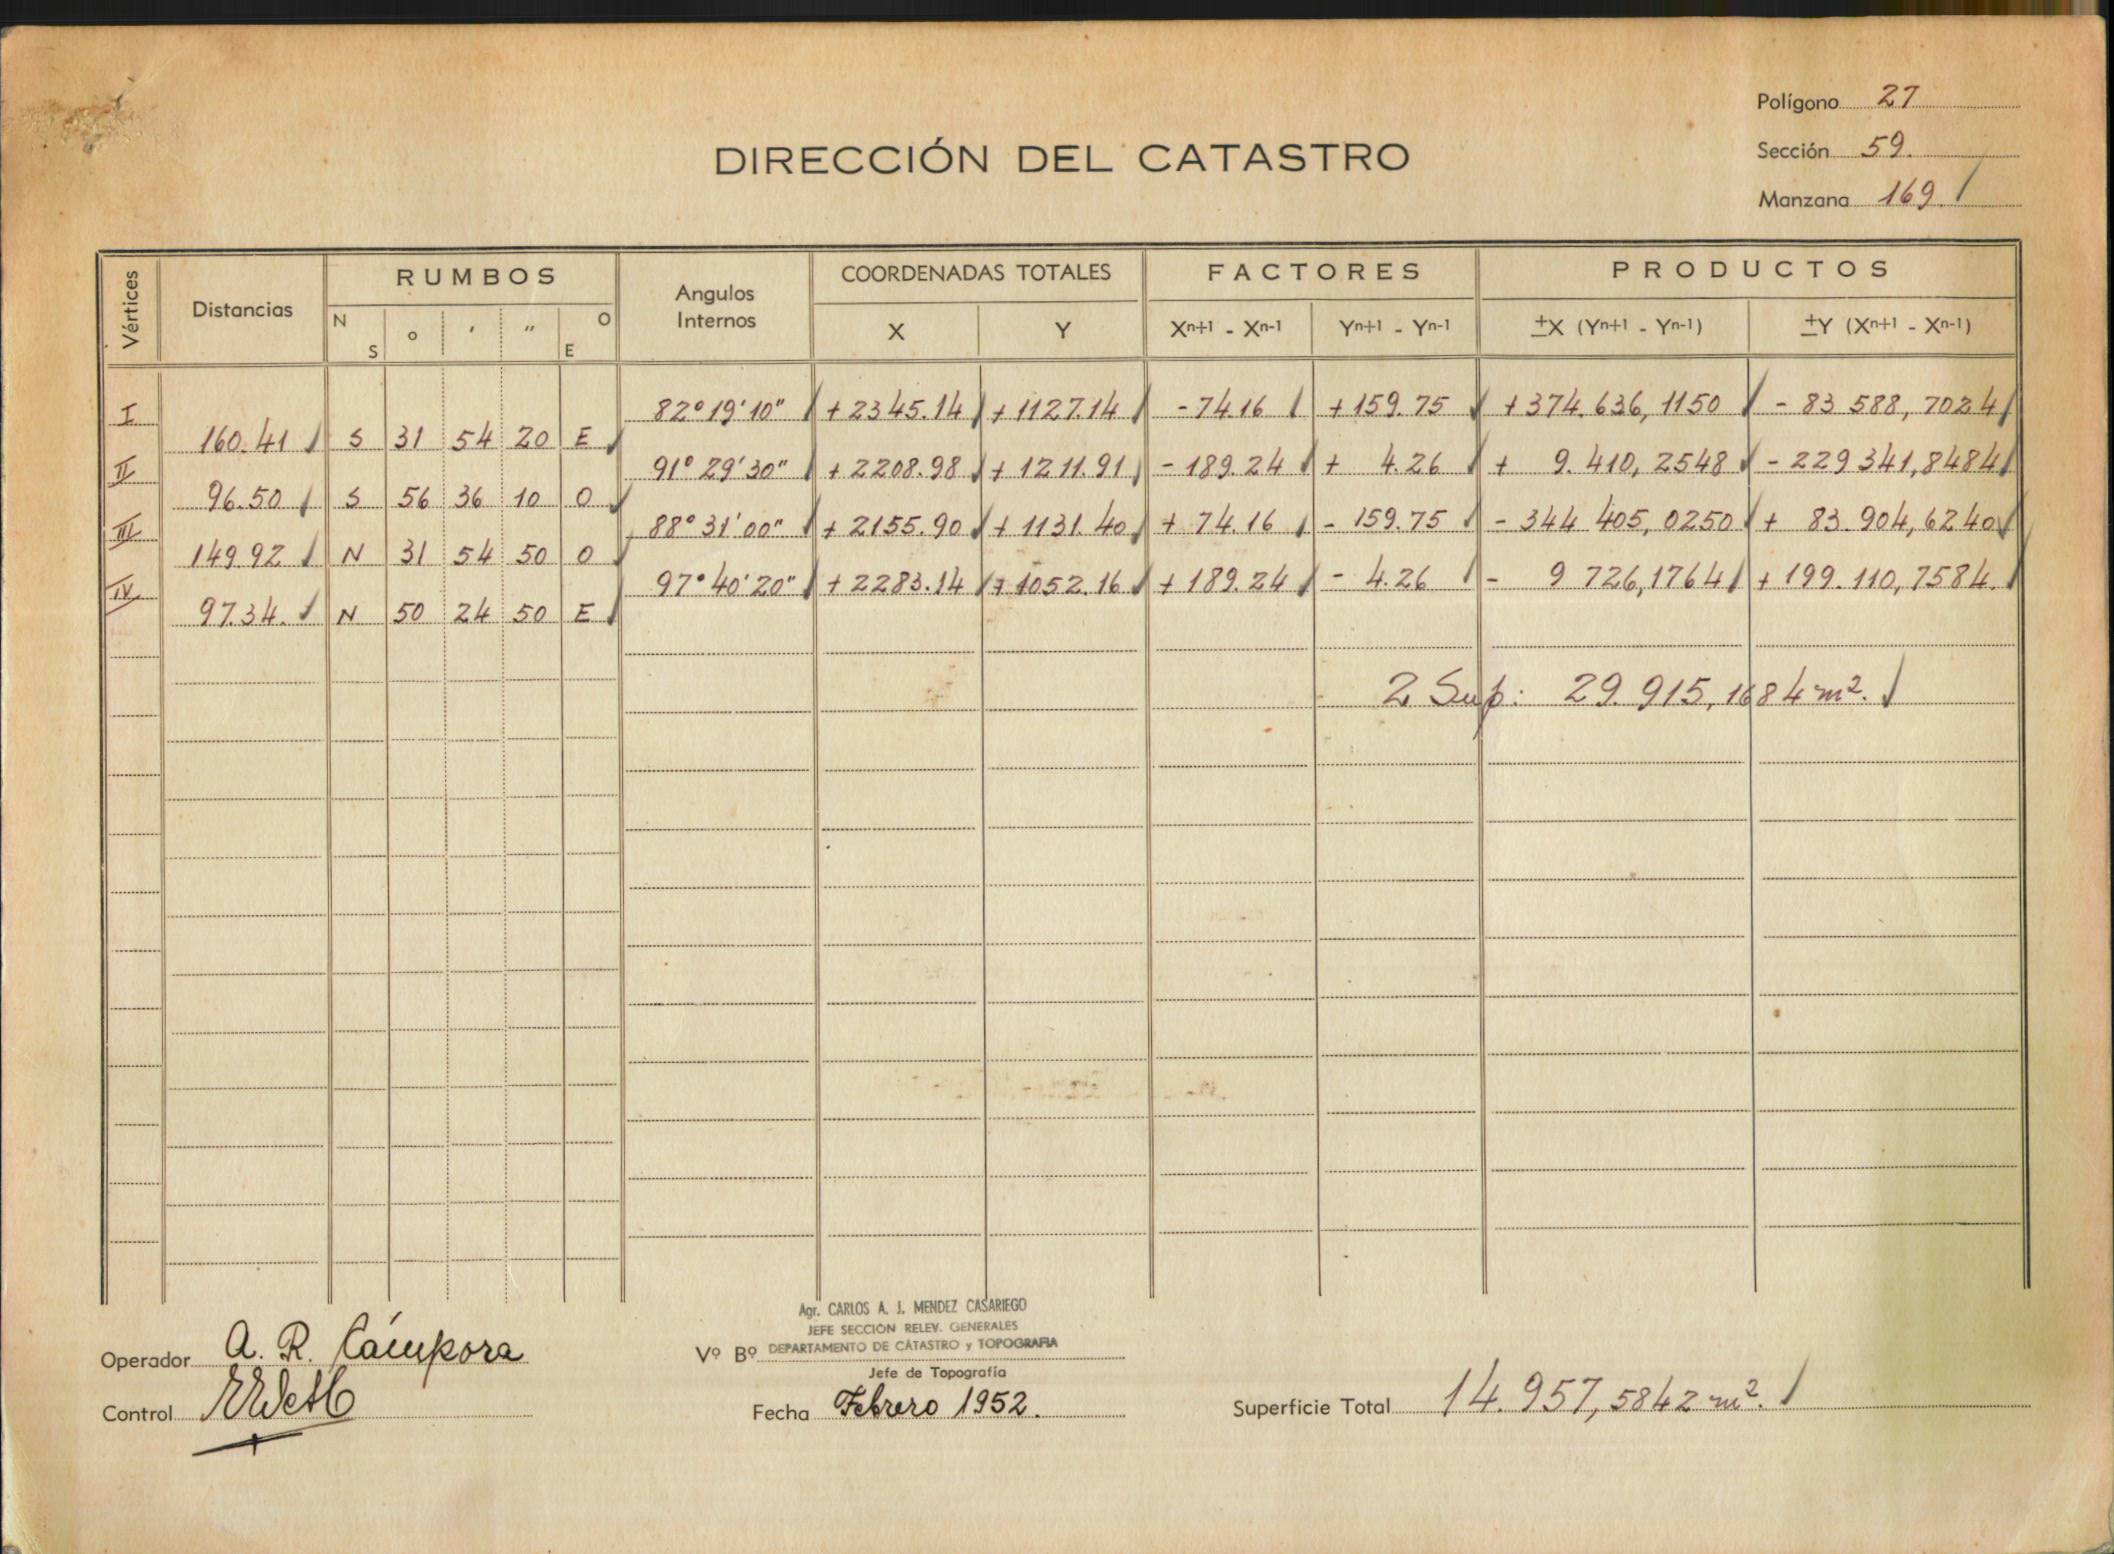 Polígono 27
DIRECCIÓN DEL CATASTRO
Sección 59.
Manzana 169.
Vértices Distancias RUMBOS Angulos Internos COORDENADAS TOTALES FACTORES PRODUCTOS
N S ° ′ ″ O E X Y Xn+1 - Xn-1 Yn+1 - Yn-1 ±X (Yn+1 - Yn-1) ±Y (Xn+1 - Xn-1)
I 82° 19' 10" + 2345.14 + 1127.14 - 74.16 + 159.75 + 374.636,1150 - 83 588,7024
160.41 S 31 54 20 E
II 91° 29' 30" + 2208.98 + 1211.91 - 189.24 + 4.26 + 9.410,2548 - 229 341,8484
96.50 S 56 36 10 O
III 88° 31' 00" + 2155.90 + 1131.40 + 74.16 - 159.75 - 344 405,0250 + 83.904,6240
149.92 N 31 54 50 O
IV 97° 40' 20" + 2283.14 + 1052.16 + 189.24 - 4.26 - 9 726,1764 + 199.110,7584.
97.34. N 50 24 50 E
2 Sup: 29.915,1684 m².
Agr. CARLOS A. J. MENDEZ CASARIEGO
JEFE SECCIÓN RELEV. GENERALES
DEPARTAMENTO DE CATASTRO y TOPOGRAFIA
Operador A. R. Cámpora
Vº Bº
Jefe de Topografía
Control
Fecha Febrero 1952.
Superficie Total 14.957,5842 m².